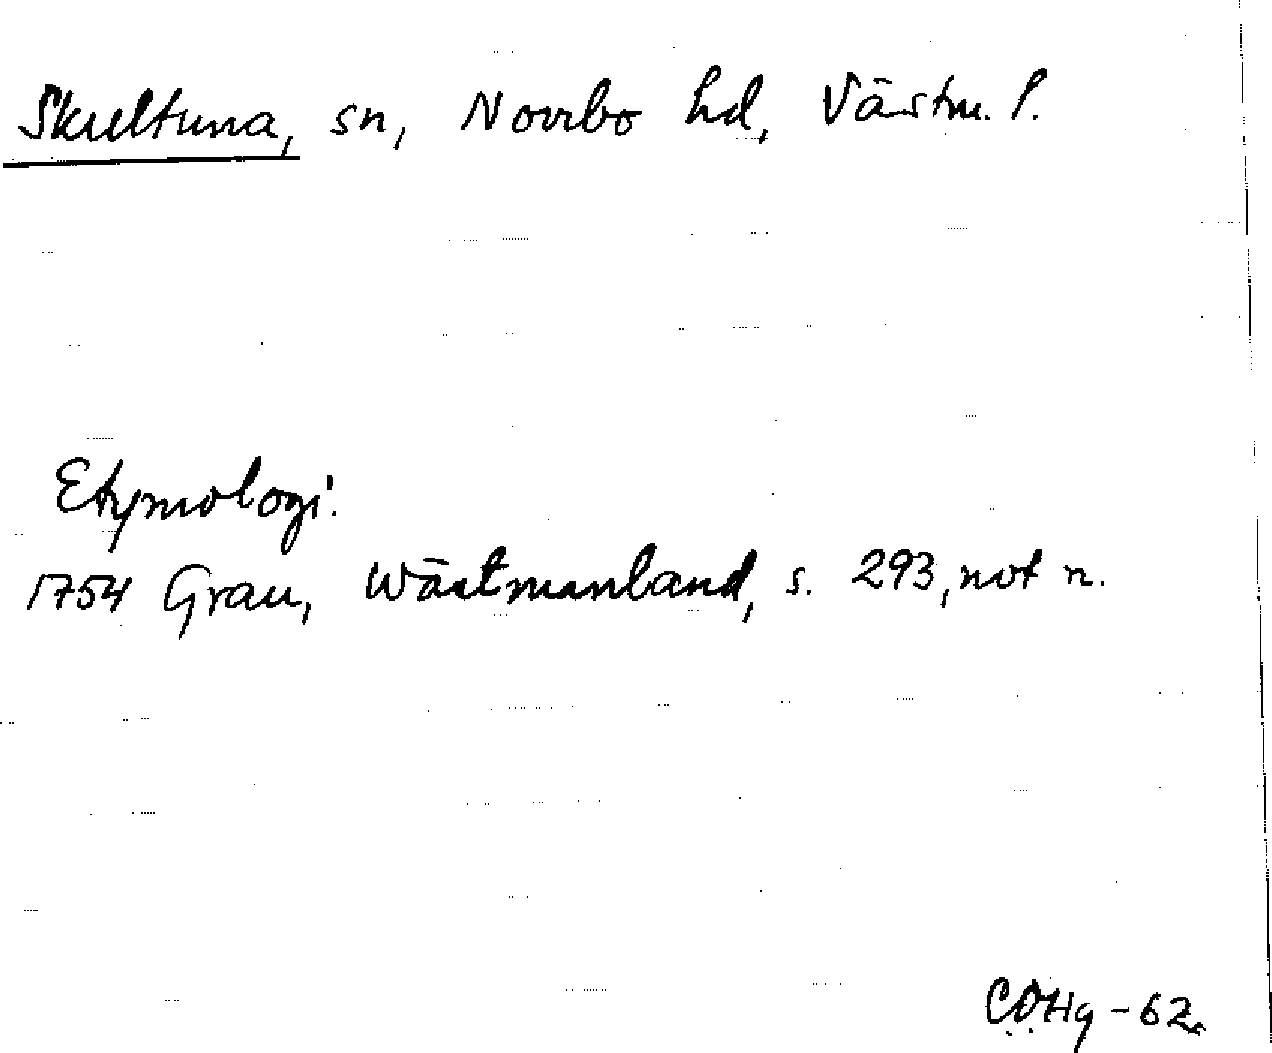 Skultuna, sn, Norrbo hd, Västm. l.
Etymologi:
1754 Grau, Wästmanland, s. 293, not n.
CÖHg - 62.